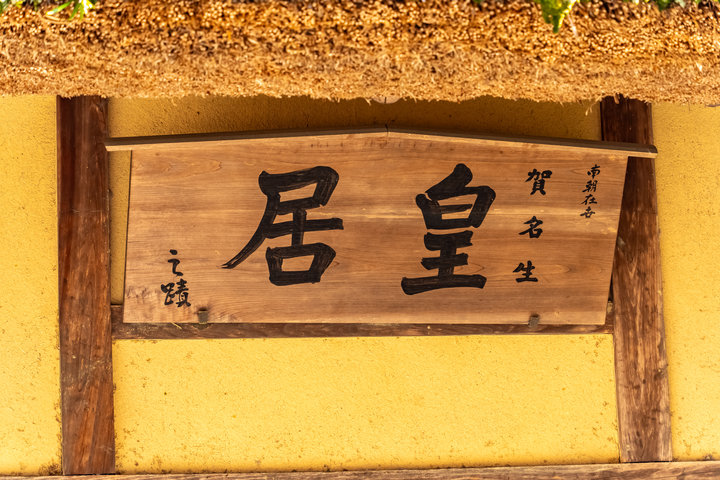 南朝在古
賀名生
皇居
之蹟